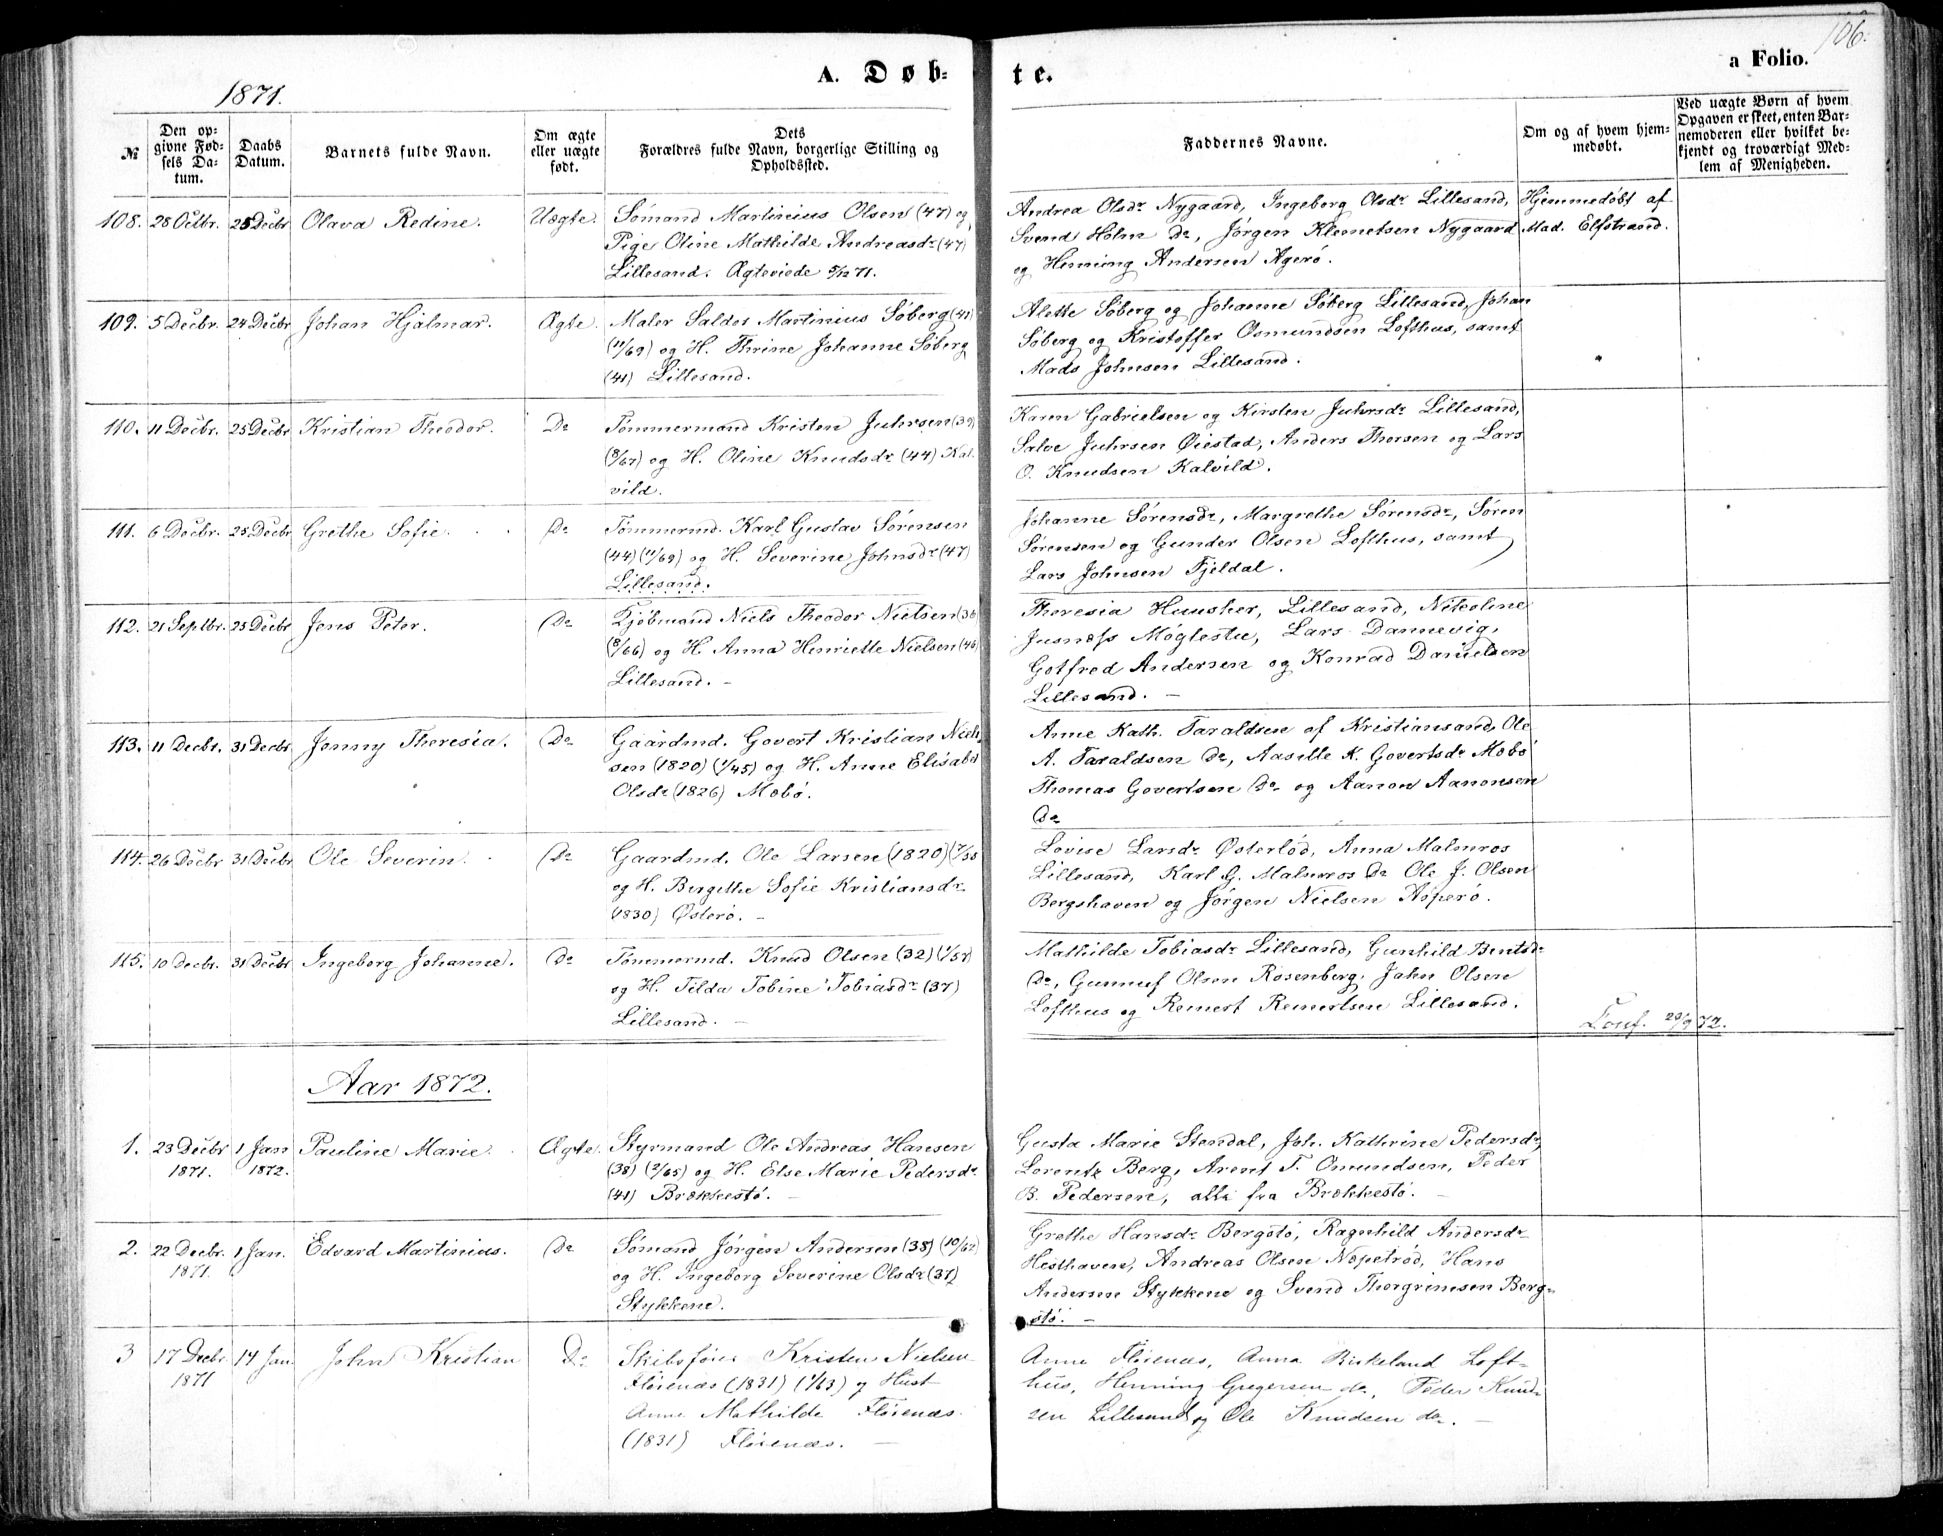 106.
A. Døb-
te.
a Folio.
1871.
№
Den op-
givne Fød-
sels Da-
tum.
Daabs
Datum.
Barnets fulde Navn.
Om ægte
eller uægte
født.
Dets
Forældres fulde Navn, borgerlige Stilling og
Opholdssted.
Faddernes Navne.
Om og af hvem hjem-
medøbt.
Ved uægte Børn af hvem
Opgaven er skeet, enten Bar-
nemoderen eller hvilket be-
kjendt og troværdigt Med-
lem af Menigheden.
108. 28 Octbr. 25 Decbr Olava Redine. Uægte. Sømand Martinius Olsen (47) og
Pige Oline Mathilde Andreasdr (47)
Lillesand. Ægteviede 5/12 71.
Andrea Olsdr Nygaard, Ingeborg Olsdr Lillesand,
Svend Holm do, Jørgen Klemetsen Nygaard
og Henning Andersen Agerø.
Hjemmedøbt af
Mad. Elfstrand.
109. 5 Decbr. 24 Decbr Johan Hjalmar. Ægte. Maler Salder Martinius Søberg (41)
(11/69) og H. Thrine Johanne Søberg
(41) Lillesand.
Alette Søberg og Johanne Søberg Lillesand, Johan
Søberg og Kristoffer Osmundsen Lofthus, samt
Mads Johnsen Lillesand.
110. 11 Decbr. 25 Decbr Kristian Theodor. Do Tømmermand Kristen Juhrsen (39)
(8/67) og H. Oline Knudsdr (44) Kal-
vild.
Karen Gabrielsen og Kirsten Juhrsdr Lillesand,
Salve Juhrsen Øiestad, Anders Thorsen og Lars
O. Knudsen Kalvild.
111. 6 Decbr. 25 Decbr Grethe Sofie. Do Tømmermd. Karl Gustav Sørensen
(44) (11/69) og H. Severine Johnsdr (47)
Lillesand.
Johanne Sørensdr, Margrethe Sørensdr, Søren
Sørensen og Gunder Olsen Lofthus, samt
Lars Johnsen Fjeldal.
112. 21 Septbr. 25 Decbr Jens Peter. Do Kjøbmand Niels Theodor Nielsen (36
(8/66) og H. Anna Henriette Nielsen (46)
Lillesand. –
Theresia Huusher, Lillesand, Nikoline
Jusnæss Møglestu, Lars Dannevig,
Gotfred Andersen og Konrad Danielsen
Lillesand. –
113. 11 Decbr. 31 Decbr Jenny Theresia. Do Gaardmd. Govert Kristian Niel-
sen (1820) (1/45) og H. Anne Elisabet
Olsdr (1826) Møbø.
Anne Kath. Taraldsen af Kristiansand, Ole
A. Taraldsen do, Aasille K. Govertsdr Møbø
Thomas Govertsen do og Aanon Aanonsen
do
114. 26 Decbr 31 Decbr Ole Severin. Do Gaardmd. Ole Larsen (1820) (7/55
og H. Bergithe Sofie Kristiansdr
(1830) Østerø. –
Lovise Larsdr Østerlød, Anna Malmros
Lillesand, Karl G. Malmros do Ole J. Olsen
Bergshaven og Jørgen Nielsen Asperø.
115. 10 Decbr. 31 Decbr Ingeborg Johanne. Do Tømmermd. Knud Olsen (32) (1/57)
og H. Tilda Tobine Tobiasdr (37)
Lillesand. –
Mathilde Tobiasdr Lillesand, Gunhild Bentsdr
do, Gunnuf Olsen Rosenberg, Jahn Olsen
Lofthus og Remert Remertsen Lillesand.
Conf. 20/9 72.
Aar 1872.
1. 23 Decbr 1 Jan Pauline Marie. Ægte. Styrmand Ole Andreas Hansen
1871. 1872. (38) (2/65) og H. Else Marie Pedersdr
(41) Brækkestø. –
Gusta Marie Stendal, Joh. Kathrine Pedersdr,
Lorentz Berg, Arent T. Omundsen, Peder
B. Pedersen, alle fra Brækkestø. –
2. 22 Decbr. 1 Jan. Edvard Martinius. Do Sømand Jørgen Andersen (38) (10/62)
1871. og H. Ingeborg Severine Olsdr (37)
Stykkene.
Grethe Hansdr Bergstø, Ragnhild Andersdr
Hesthaven, Andreas Olsen Nøpetrød, Hans
Andersen Stykkene og Svend Thorgrimsen Berg-
stø. –
3 17 Decbr 14 Jan. John Kristian Do Skibsfører Kristen Nielsen
1871 Flørenæs (1831) (1/63) og Hust
Anne Mathilde Flørenæs.
(1831) Flørenæs. –
Anne Flørenæs, Anna Birkeland Loft-
hus, Henning Gregersen do, Peder Knud-
sen Lillesand og Ole Knudsen do. –